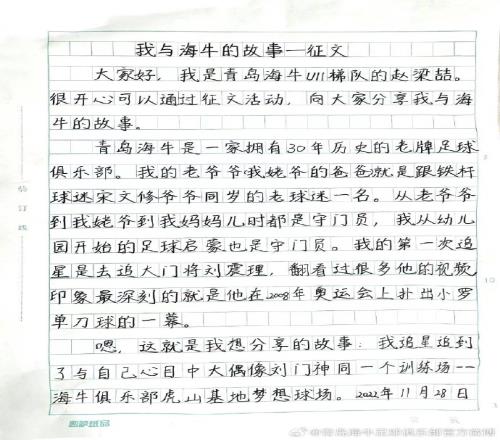 我与海牛的故事—征文
大家好，我是青岛海牛U11梯队的赵梁喆。
很开心可以通过征文活动，向大家分享我与海
牛的故事。
青岛海牛是一家拥有30年历史的老牌足球
俱乐部。我的老爷爷我姥爷的爸爸就是跟铁杆
球迷宋文修爷爷同岁的老球迷一名。从老爷爷
到我姥爷到我妈妈儿时都是守门员，我从幼儿
园开始的足球启蒙也是守门员。我的第一次追
星是去追大门将刘震理，翻看过很多他的视频
印象最深刻的就是他在2008年奥运会上扑出小罗
单刀球的一幕。
嗯，这就是我想分享的故事：我追星追到
了与自己心目中大偶像刘门神同一个训练场--
海牛俱乐部虎山基地梦想球场。2022年11月28日
装订线
10
@青岛海牛足球俱乐部官方微博